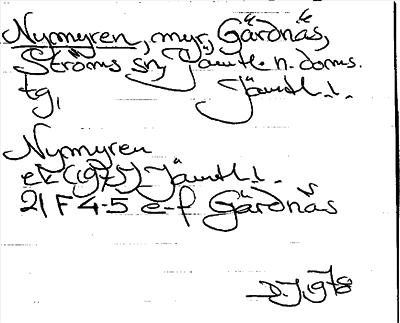 Nymyren, myr, Gärdnäs,
Ströms sn, Jämtl. n. doms.
tg, Jämtl. l.
Nymyren
ek (1975) Jämtl. l.
21 F 4-5 e-f Gärdnäs
D.J. 1978